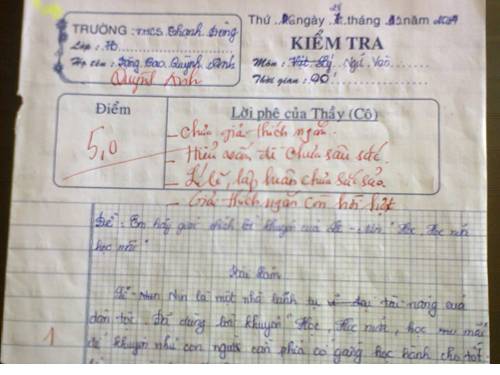 TRƯỜNG: THCS Thanh Dòng
Lớp:
Họ tên: Cao Quỳnh Anh
Quỳnh Anh
Thứ ngày tháng năm
KIỂM TRA
Môn: Vật Lý Ngữ Văn
Thời gian: 90'
Điểm
5,0
Lời phê của Thầy (Cô)
- Chưa giải thích ngắn.
- Hiểu vấn đề chưa sâu sắc.
- Lí lẽ, lập luận chưa sắc sảo.
- Giải thích ngắn còn hời hợt
Đề: Em hãy giải thích lời khuyên của Lê-Nin "Học, Học nữa
học mãi"
Bài làm
Lê-Nin là một nhà lãnh tụ vĩ đại tài năng của
dân tộc. Đã dùng lời khuyên "Học, Học nữa, học mãi
để khuyên như con người cần phải cố gắng học hành cho tốt
1